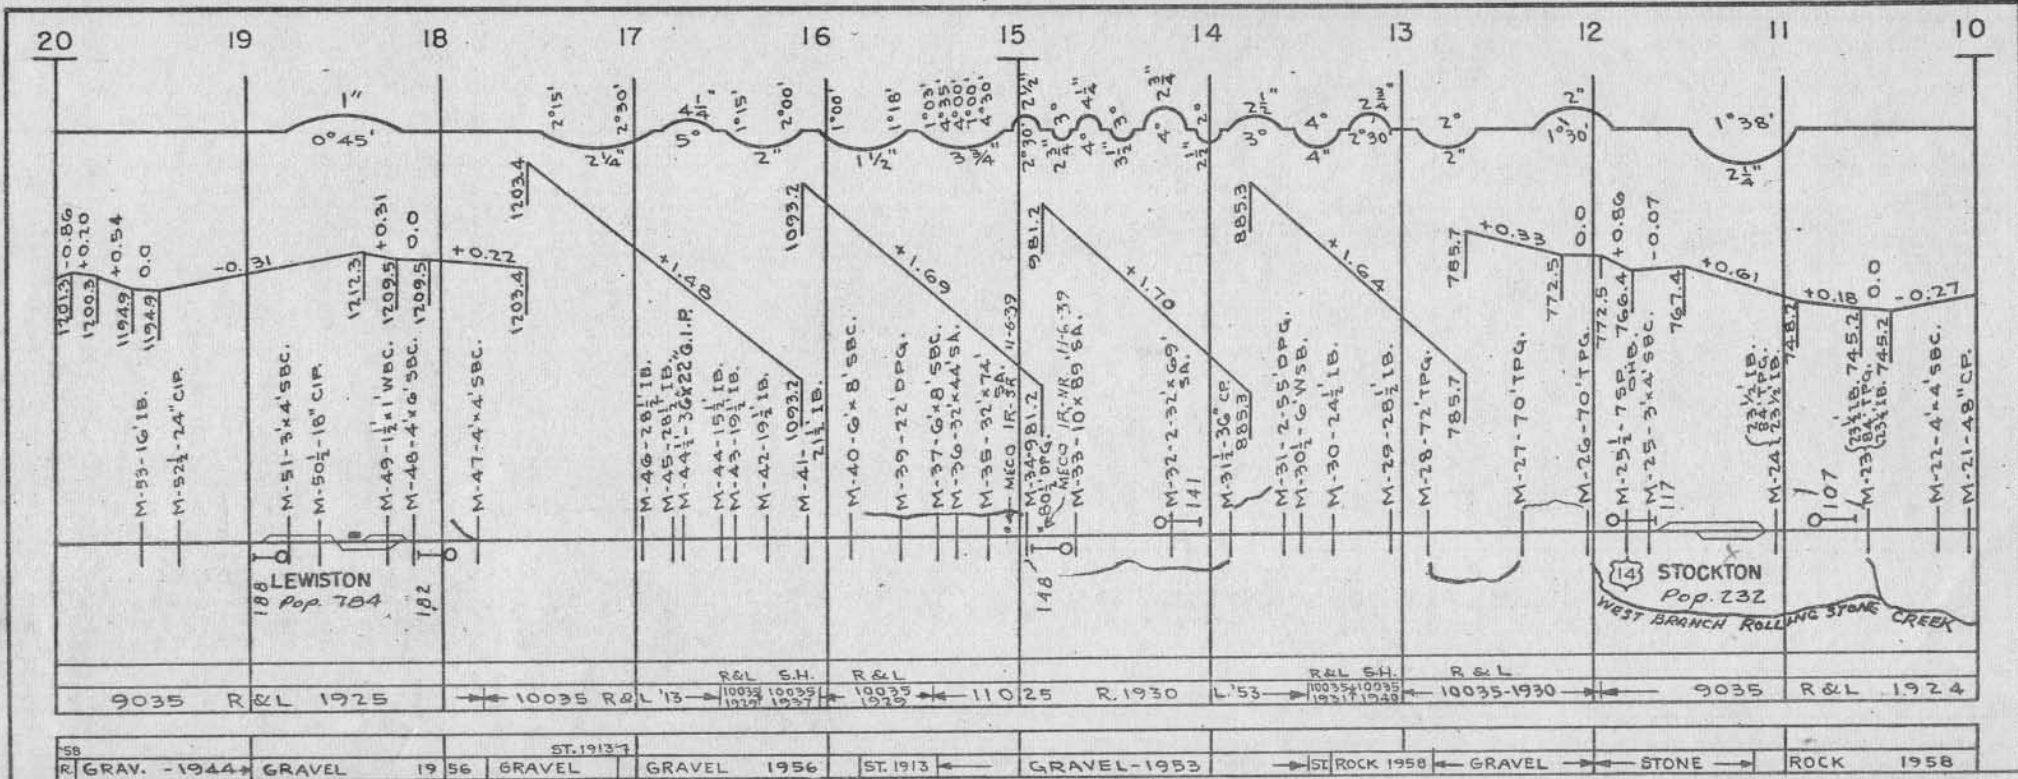 20 19 18 17 16 15 14 13 12 11 10
1" 0°45'
2°15' 2°30' 2¼" 5° 1°15' 2°00' 2" 1°00' 1°18' 1½"
1°03' 4°35' 4°00' 7°00' 4°30' 3¾"
2°30' 2½" 2¾" 3° 4° 4¼" 3½" 3° 4° 2¾" 2½" 2° 3° 4° 4" 2°30' 2° 2"
1°30' 2" 1°38' 2¼"
1201.3 -0.86 1200.3 +0.20 1194.9 +0.54 1194.9 0.0 -0.31 1212.3 +0.31 1209.5 0.0 1209.5 +0.22 1203.4
1203.4 +1.48 1093.2
1093.2 +1.69 981.2
981.2 +1.70 885.3
885.3 +1.64 785.7
785.7 +0.33 772.5 0.0 772.5 +0.86 766.4 -0.07 767.4 +0.61 748.2 +0.18 745.2 0.0 745.2 -0.27
M-53-16'IB.
M-52½-24"CIP.
M-51-3'x4'SBC.
M-50½-18"CIP.
M-49-1½'x1'WBC.
M-48-4'x6'SBC.
M-47-4'x4'SBC.
M-46-28½'IB.
M-45-28½'IB.
M-44½-36x22"G.I.P.
M-44-19½'IB.
M-43-19½'IB.
M-42-19½'IB.
M-41-21½'IB.
M-40-6'x8'SBC.
M-39-22'DPG.
M-37-6'x8'SBC.
M-36-32'x44'SA.
M-35-32'x74'SA.
MECO IR-SR 11-6-39
M-34-80½'DPG.
MECO IR-NR 11-6-39
M-33-10'x89'SA.
M-32-2-32'x69'SA.
141
M-31½-36"CP.
M-31-2-55'DPG.
M-30½-6'WSB.
M-30-24½'IB.
M-29-28½'IB.
M-28-72'TPG.
M-27-70'TPG.
M-26-70'TPG.
M-25½-7SP.OHB.
M-25-3'x4'SBC.
117
M-24 23½'IB. 84'TPG. 23½'IB.
107
M-23 23½IB. 84'TPG. 23½IB.
M-22-4'x4'SBC.
M-21-48"CP.
188 LEWISTON 182 148 14 STOCKTON
Pop. 784 Pop. 232
WEST BRANCH ROLLING STONE CREEK
R&L S.H. R&L R&L S.H. R&L
9035 R&L 1925 10035 R&L '13 10035 1929 10035 1937 10035 1929 11025 R.1930 L.'53 10035 1931 10035 1940 10035-1930 9035 R&L 1924
'58 ST.1913
R. GRAV. -1944 GRAVEL 1956 GRAVEL GRAVEL 1956 ST.1913 GRAVEL-1953 ST. ROCK 1958 GRAVEL STONE ROCK 1958